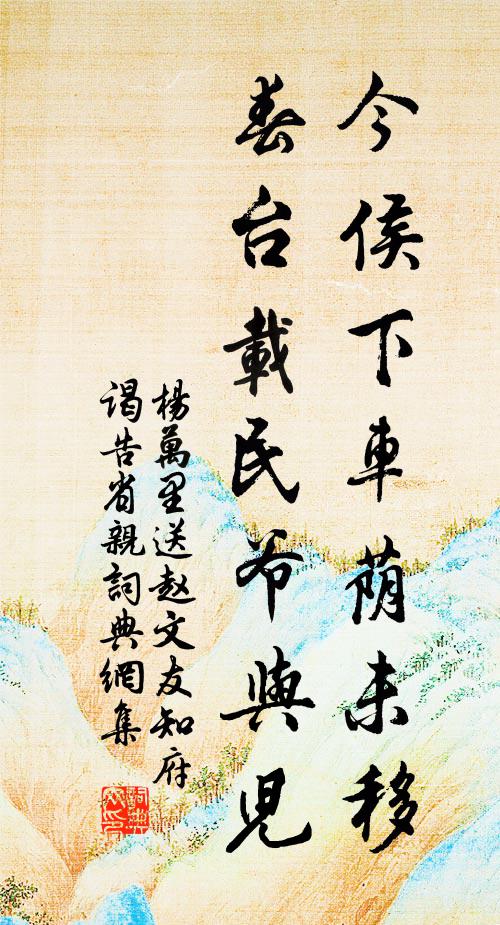 今侯下車荫未移
春台載民爷與児
楊萬里送赵文友知府
谒告省親詞典網集